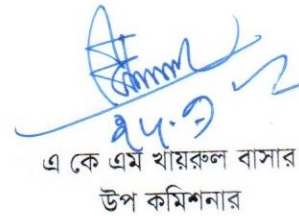 এ কে এম খায়রুল বাসার
উপ কমিশনার